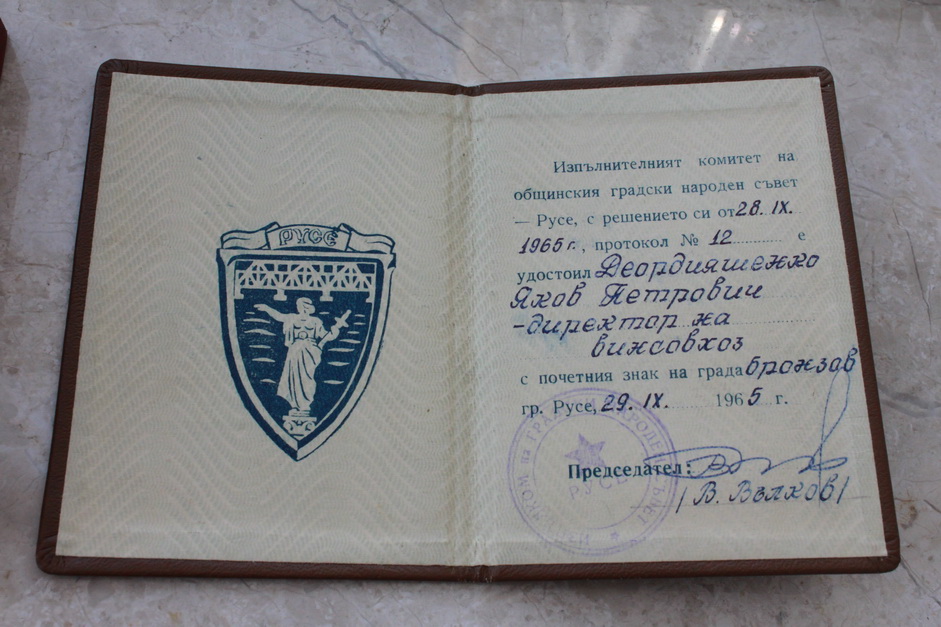 РУСЕ
Изпълнителният комитет на
общинския градски народен съвет
— Русе, с решението си от 28. IX.
1965 г., протокол № 12 е
удостоил Деордияшенко
Яков Петрович
-директор на
винсовхоз
с почетния знак на града бронзов
гр. Русе, 29. IX. 1965 г.
Председател:
/В. Вълков/
ГРАДСКИ НАРОДЕН СЪВЕТ
РУСЕ